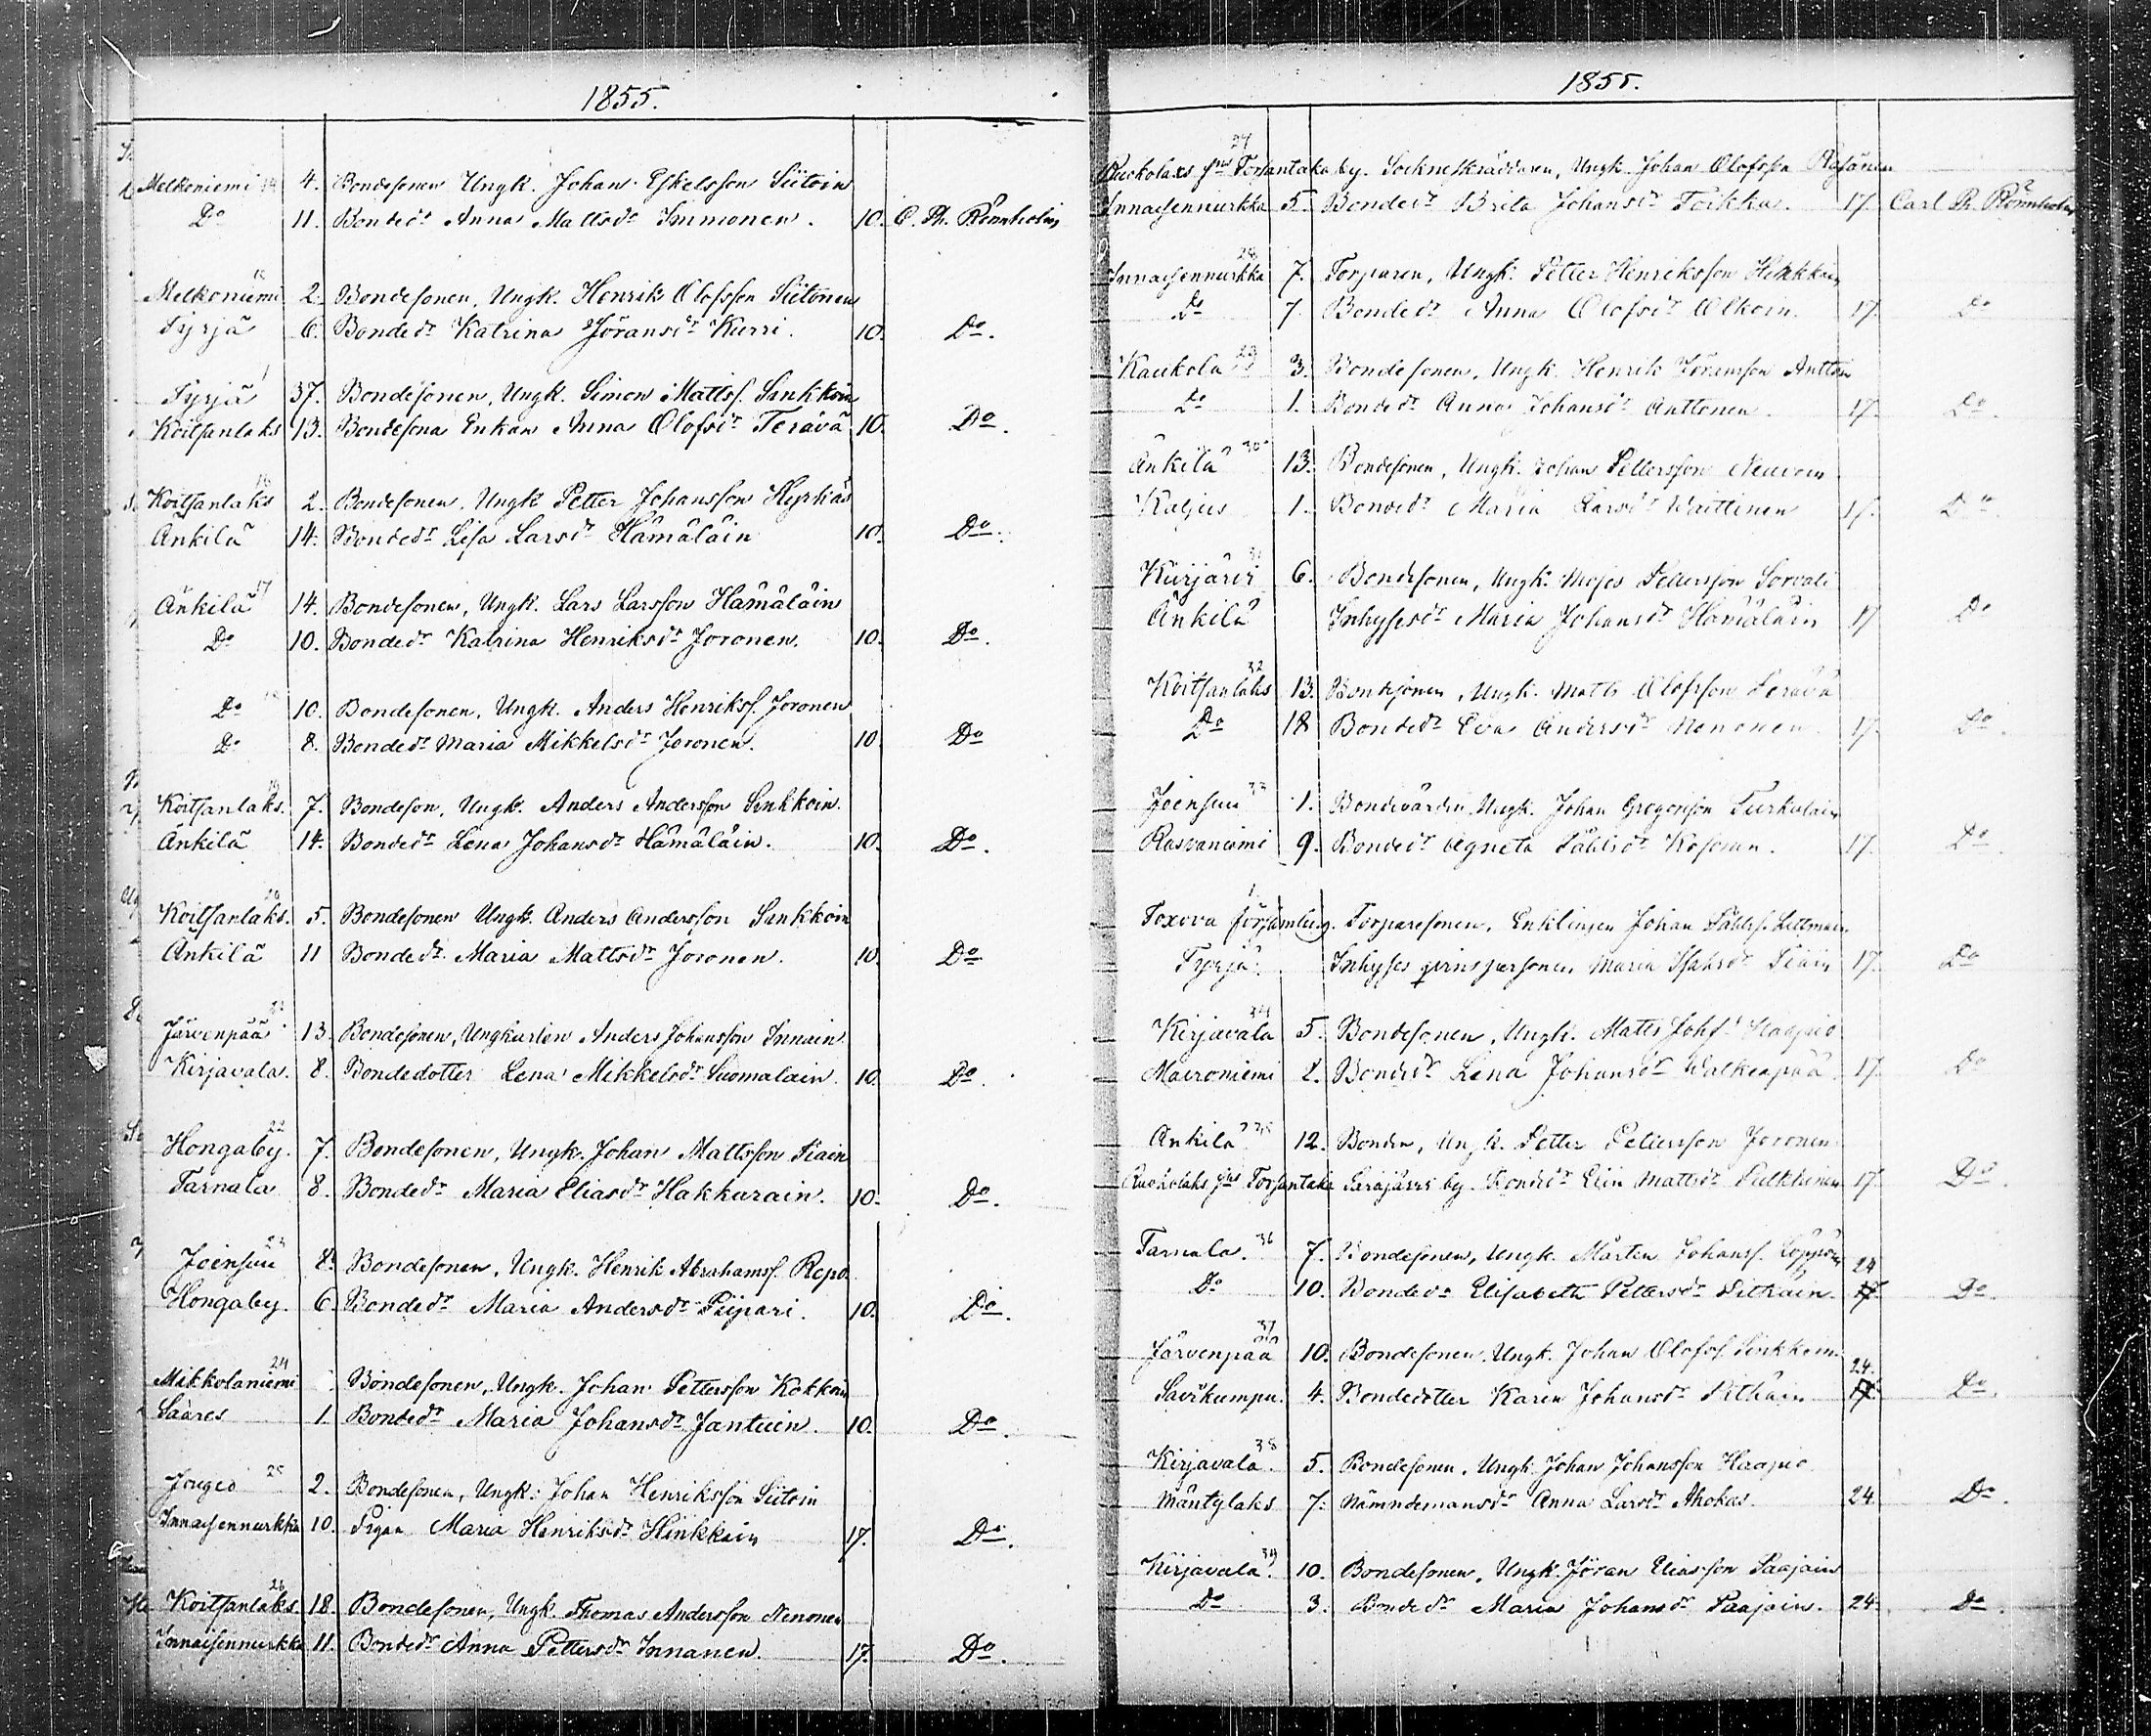 1855.
Melkoniemi 14 4. Bondesonen Ungk. Johan Eskelsson Siitoin
Do 11. Bondedr Anna Mattsdr Immonen. 10. C. Th. Rönnholm
Melkoniemi 2. Bondesonen, Ungk. Henrik Olofsson Siitonen
Tyrjä 6. Bondedr Katrina Jöransdr Kurri. 10. Do.
Tyrjä 37. Bondesonen, Ungk. Simon Mattss. Sinkkoin
Koitsanlaks 13. Bondesona Enkan Anna Olofsdr Terävä 10. Do.
16
Koitsanlaks 2. Bondesonen, Ungk Petter Johansson Hyrkäs
Änkilä 14. Bondedr Lisa Larsdr Hämäläin 10. Do.
Änkilä 17 14. Bondesonen, Ungk. Lars Larsson Hämäläin
Do 10. Bondedr Katrina Henriksdr Joronen. 10. Do.
Do 18 10. Bondesonen, Ungk. Anders Henrikss. Joronen
Do 8. Bondedr Maria Mikkelsdr Joronen. 10. Do
19
Koitsanlaks. 7. Bondeson, Ungk. Anders Andersson Sinkkoin.
Änkilä 14. Bondedr Lena Johansdr Hämäläin. 10. Do.
20
Koitsanlaks. 5. Bondesonen Ungk. Anders Andersson Sinkkoin
Änkilä 11 Bondedr. Maria Mattsdr Joronen. 10. Do
21
Järvenpää 13. Bondesonen, Ungkarlen Anders Johansson Innain
Kirjavala. 8. Bondedotter Lena Mikkelsdr Suomalain. 10. Do.
22
Hongaby. 7. Bondesonen, Ungk. Johan Mattsson Tiain
Tarnala 8. Bondedr Maria Eliasdr Hakkarain. 10. Do.
23
Joensuu 8. Bondesonen, Ungk. Henrik Abrahamss. Repo.
Hongaby. 6. Bondedr Maria Andersdr Piipari. 10. Do.
24
Mikkolaniemi Bondesonen, Ungk. Johan Pettersson Kokkoin
Saares 1. Bondedr Maria Johansdr Jantuin. 10. Do.
Jougio 25 2. Bondesonen, Ungk: Johan Henriksson Siitoin
Innasennurkka 10. Pigan Maria Henriksdr Hinkkain 17. Do.
26
Koitsanlaks. 18. Bondesonen, Ungk. Thomas Andersson Nenonen
Innaisennurkka 11. Bondedr Anna Pettersdr Innanen. 17. Do.
1855.
27
Ruokolaks Torsantaka by. Sockneskräddaren, Ungk. Johan Olofsson Räsänen
Innasennurkka 5. Bondedr Brita Johansdr Toikka. 17. Carl Th. Rönnholm
28
Innasennurkka 7. Torparen, Ungk. Petter Henriksson Hinkkain
Do 7. Bondedr Anna Olofsdr Olkoin. 17. Do
Kaukola 29 3. Bondesonen, Ungk. Henrik Jöransson Anttoin
Do 1. Bondedr Anna Johansdr Anttonen. 17. Do.
Änkilä 30 13. Bondesonen, Ungk. Johan Pettersson Neuvoin
Kaljus 1. Bondedr Maria Larsdr Waittinen 17. Do
31
Kurjärvi 6. Bondesonen, Ungk. Moses Pettersson Sorvali
Änkilä Inhysesdr Maria Johansdr Hämäläin 17 Do
32
Koitsanlaks 13. Bondesonen Ungk. Matts Olofsson Terävä
Do 18 Bondedr Eva Andersdr Nenonen. 17. Do.
Joensuu 33 1. Bondevärden Ungk. Johan Gregersson Turkulain
Rasvaniemi 9. Bondedr Agneta Påhlsdr Kosonen. 17. Do.
1.
Toxova församling. Torparesonen, Enklingen Johan Påhlss.
Tyrjä. Inhyses qvinspersonen Maria Isaksdr Tiain 17. Do
34
Kirjavala 5. Bondesonen, Ungk. Matts Johss Haapio
Mairaniemi 2. Bondedr Lena Johansdr Walkeapää 17. Do
Änkilä 35 12. Bonden, Ungk. Petter Pettersson Joronen
Ruokolaks Torsantaka Särajärvi by Bondedr Elin Mattsdr Pulkkinen 17. Do.
Tarnala. 36 7. Bondesonen, Ungk. Mårten Johanss. Löppöin 24
Do 10. Bondedr Elisabeth Pettersdr Pitkäin. 17. Do.
37
Järvenpää 10. Bondesonen. Ungk. Johan Olofss. Sinkkoin. 24.
Savikumpu. 4. Bondedotter Karin Johansdr Pitkäin 17. Do.
38
Kirjavala. 5. Bondesonen, Ungk. Johan Johansson Haapio
Mäntylaks 7. Nämndemansdr Anna Larsdr Ahokas. 24. Do.
39
Kirjavala. 10. Bondesonen, Ungk. Jöran Eliasson Paajain
Do 3. Bondedr Maria Johansdr Paajain. 24. Do.